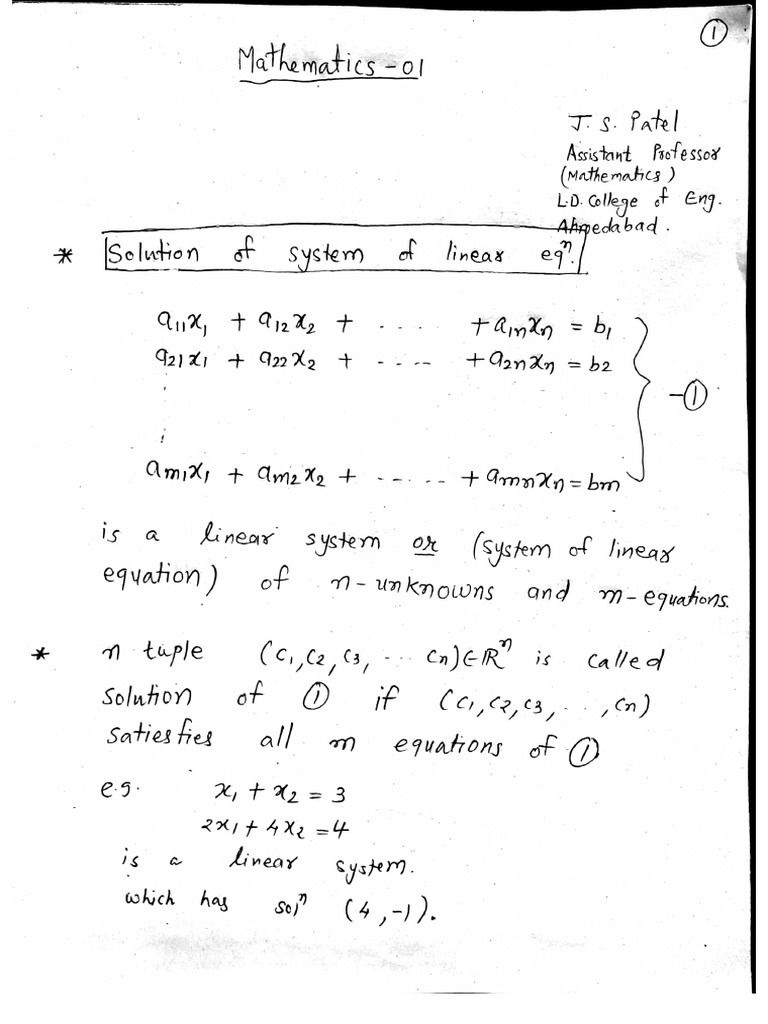 ①
Mathematics-01
J. S. Patel
Assistant Professor
(Mathematics)
L.D. College of Eng.
Ahmedabad.
* Solution of system of linear eqⁿ.
a₁₁x₁ + a₁₂x₂ + .... + a₁ₙxₙ = b₁
a₂₁x₁ + a₂₂x₂ + .... + a₂ₙxₙ = b₂
-①
aₘ₁x₁ + aₘ₂x₂ + ..... + aₘₙxₙ = bₘ
is a linear system or (system of linear
equation) of n-unknowns and m-equations.
* n tuple (c₁,c₂,c₃, ... cₙ)∈ℝⁿ is called
solution of ① if (c₁,c₂,c₃, .. ,cₙ)
satiesfies all m equations of ①
e.g. x₁ + x₂ = 3
2x₁ + 4x₂ = 4
is a linear system.
which has solⁿ (4,-1).